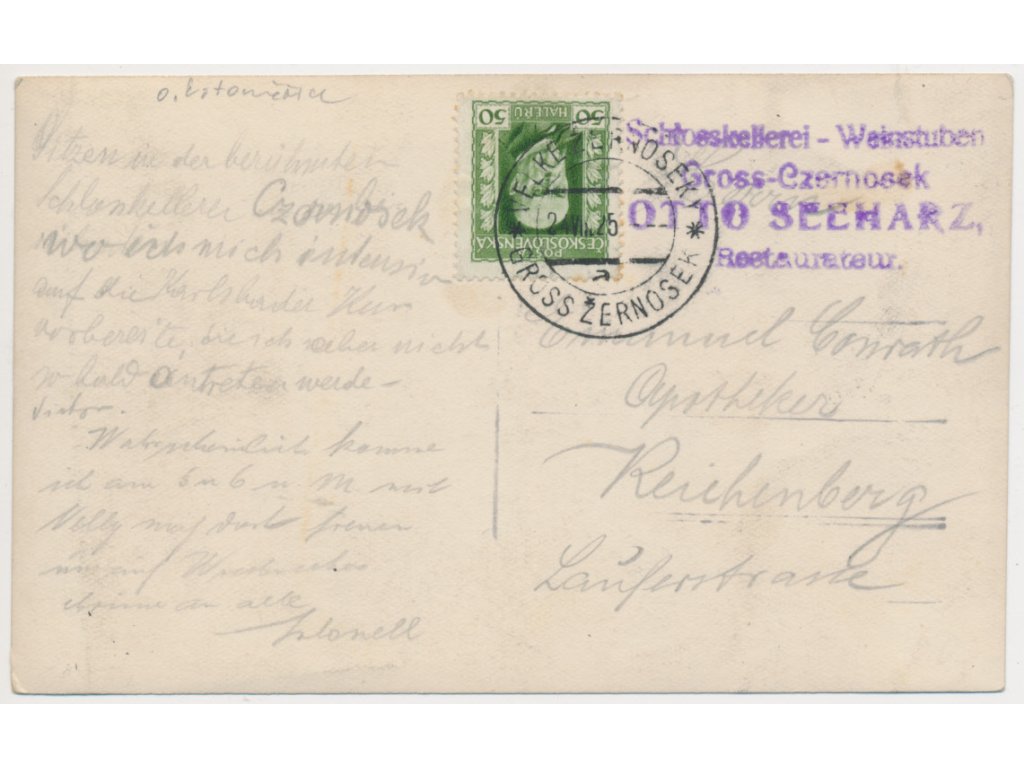 o. Litoměřice
Sitzen in der berühmten
Schlosskellerei Czernosek
wo ich mich intensiv
auf die Karlsbader Kur
vorbereite, die ich aber nicht
so bald antreten werde
Wahrscheinlich komme
ich am 5 u 6 u. M. mit
Nelly
an alle
50 50
HALERU
POŠTA
ČESKOSLOVENSKÁ
VELKÉ ŽERNOSEKY
GROSS ŽERNOSEK
25
Schlosskellerei - Weinstuben
Gross-Czernosek
OTTO SEEHARZ,
Restaurateur.
Emanuel Conrath
Apotheker
Reichenberg
Lauferstrasse